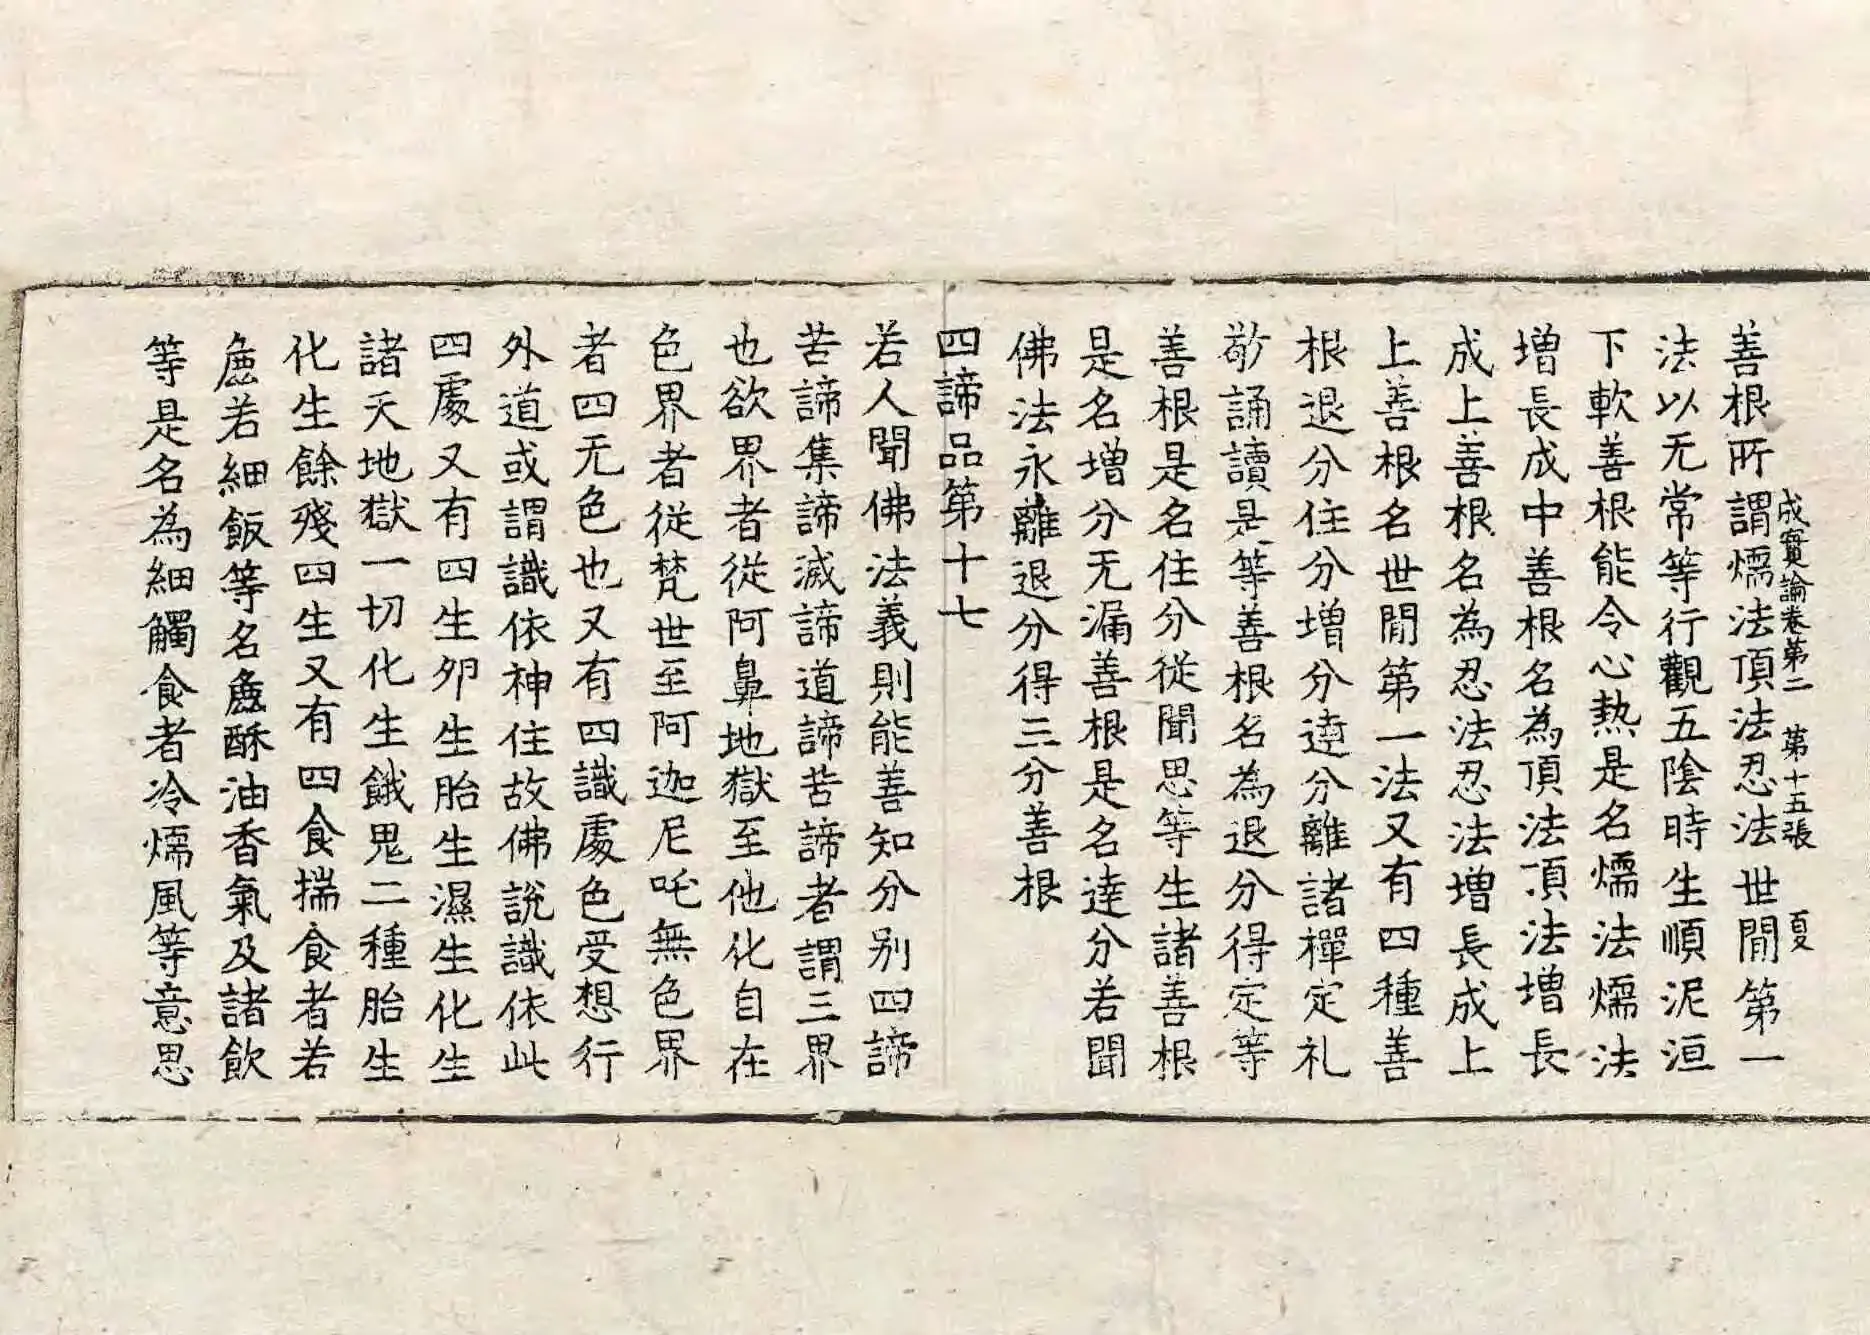 成實論卷第二 第十五張 夏
善根所謂燸法頂法忍法世閒第一
法以无常等行觀五陰時生順泥洹
下軟善根能令心熱是名燸法燸法
增長成中善根名為頂法頂法增長
成上善根名為忍法忍法增長成上
上善根名世閒第一法又有四種善
根退分住分增分達分離諸禪定礼
敬誦讀是等善根名為退分得定等
善根是名住分從聞思等生諸善根
是名增分无漏善根是名達分若聞
佛法永離退分得三分善根
四諦品第十七
若人聞佛法義則能善知分别四諦
苦諦集諦滅諦道諦苦諦者謂三界
也欲界者從阿鼻地獄至他化自在
色界者從梵世至阿迦尼吒無色界
者四无色也又有四識處色受想行
外道或謂識依神住故佛說識依此
四處又有四生卵生胎生濕生化生
諸天地獄一切化生餓鬼二種胎生
化生餘殘四生又有四食揣食者若
麁若細飯等名麁酥油香氣及諸飲
等是名為細觸食者冷燸風等意思